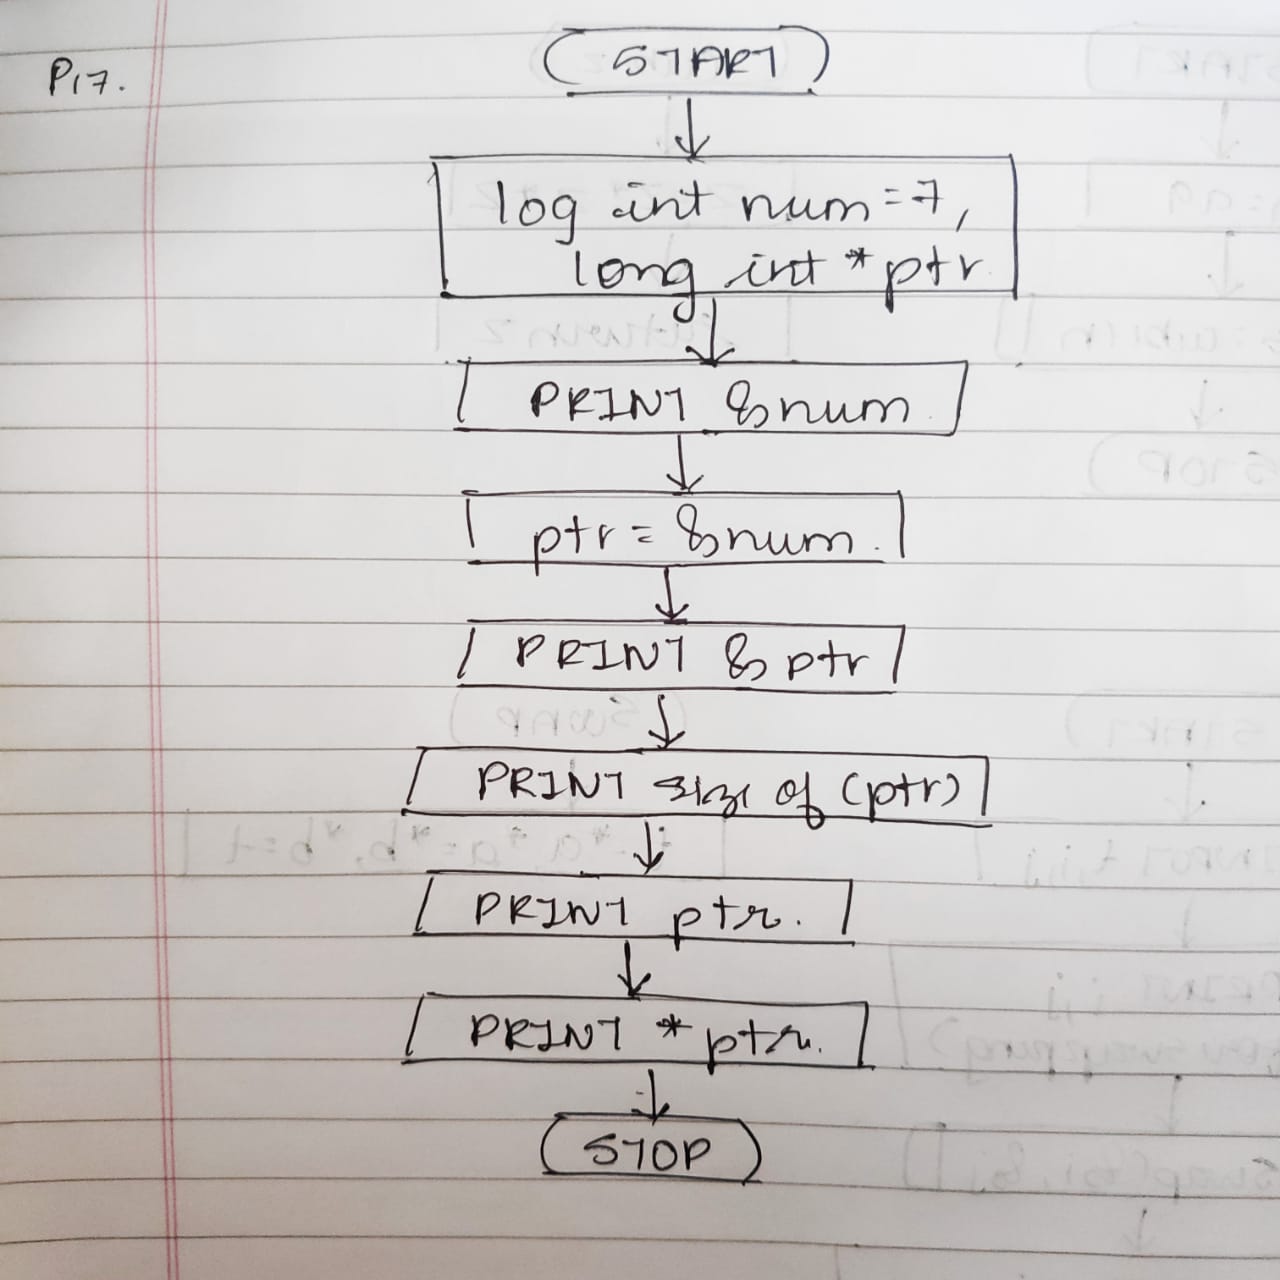 P17.
START
log int num=7,
long int *ptr
PRINT &num.
ptr = &num.
PRINT &ptr
PRINT size of (ptr)
PRINT ptr.
PRINT *ptr.
STOP